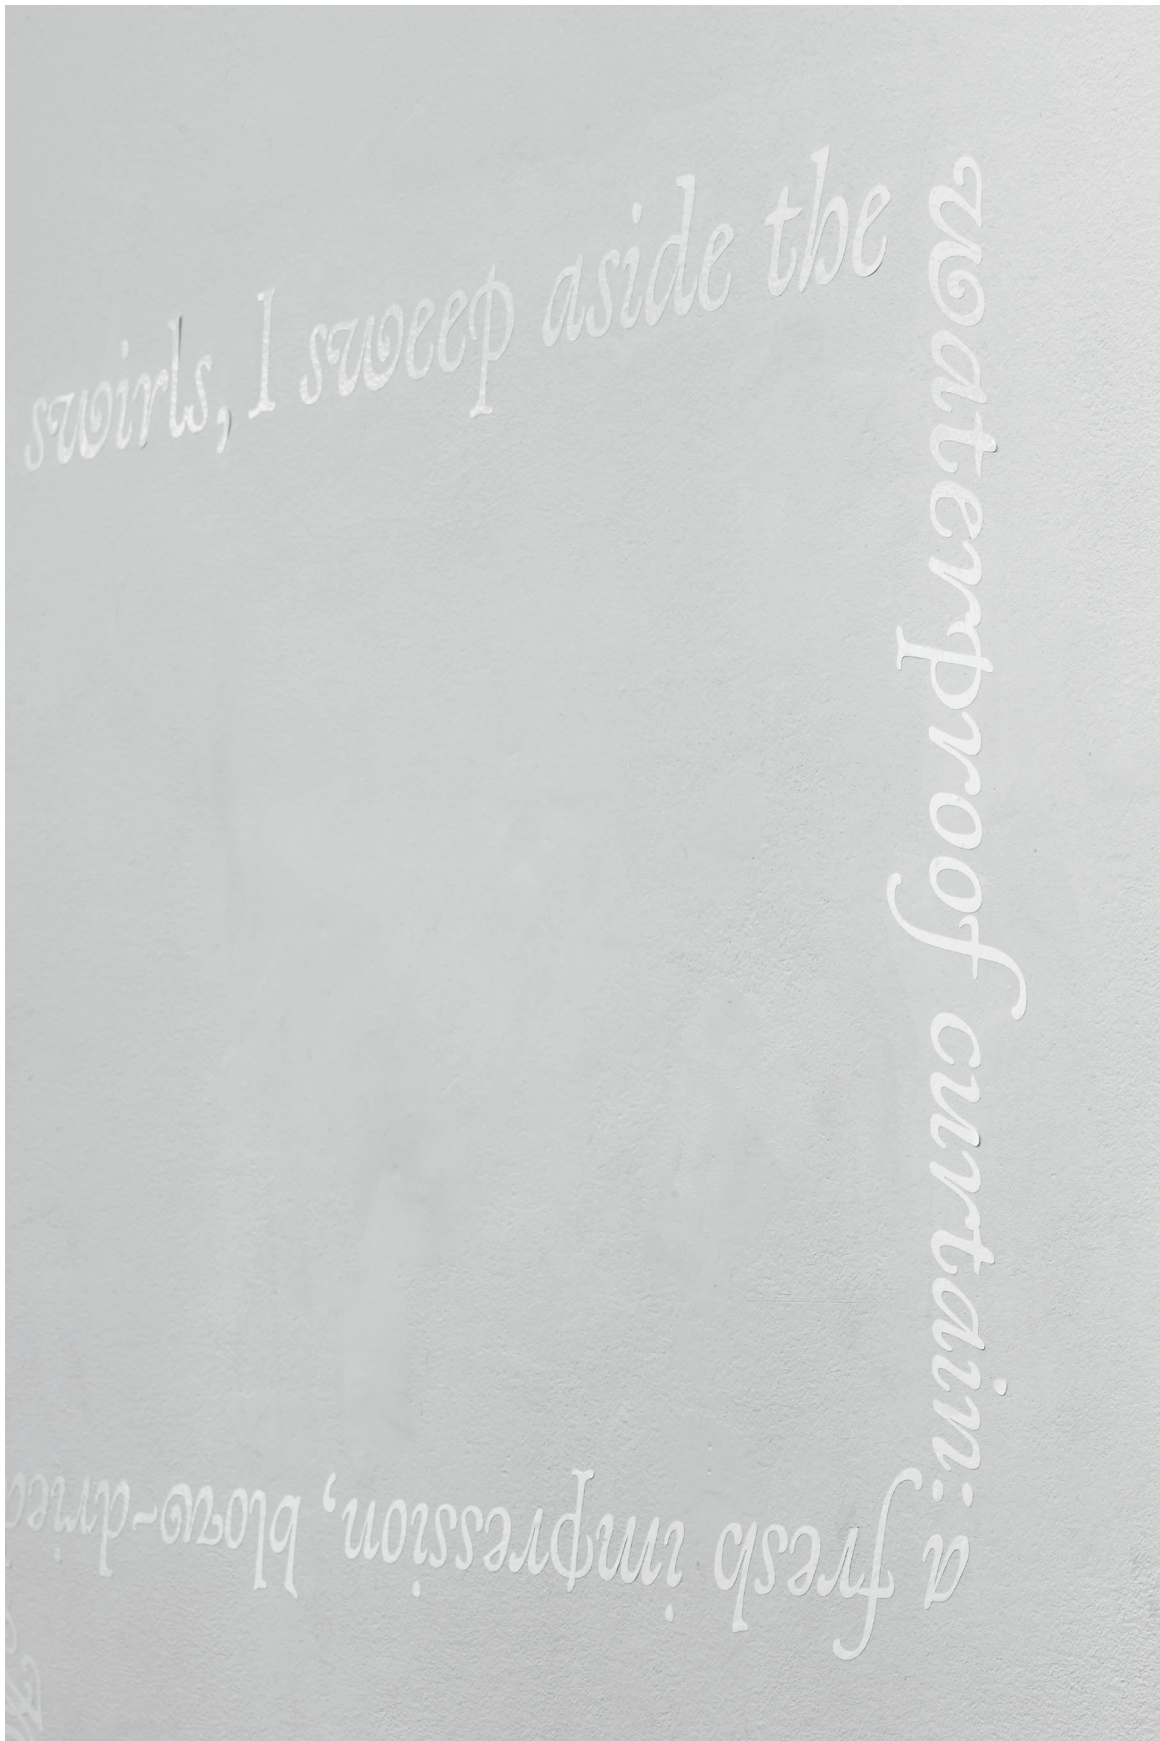 swirls, I sweep aside the
waterproof curtain: a
fresh impression, blow-dried